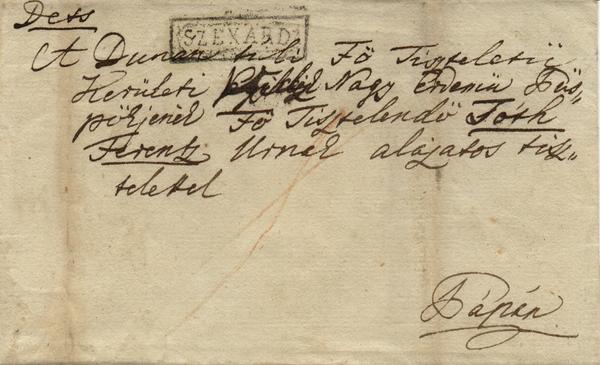 Dess
SZEXARD
A Dunan tuli Fő Tiszteletü
Kerületi Nagy Érdemü Püs„
pökjenek Fő Tisztelendő Tóth
Ferentz Urnak alázatos tisz„
telettel
Pápán